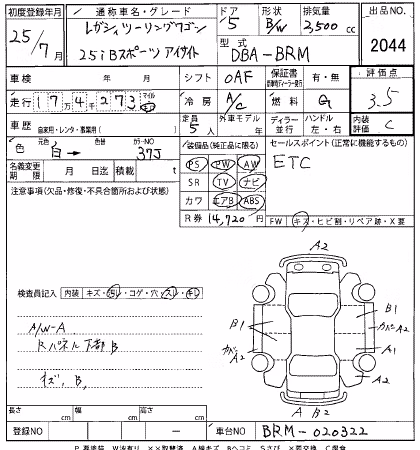 初度登録年月 通称車名・グレード ドア 形状 排気量 出品番号
25/7月 レガシィツーリングワゴン 5 B/W 2,500cc 2044
25iBスポーツ アイサイト
型式 DBA-BRM
車検 年 月 シフト OAF 保証書 有・無 評価点 3.5
走行 174273 マイル km 冷房 A/C 燃料 G
車歴 自家用・レンタ・事業用( ) 定員 5人 外車モデル 年 ディーラー 並行 ハンドル 左・右 内装評価 C
色 元色 白→ 色替 カラーNO 37J 装備品(純正品に限る) セールスポイント(正常に機能するもの)
PS PW AW ETC
名義変更期限 月 日迄 積載 t SR TV ナビ
注意事項(欠品・修復・不具合箇所および状態) カワ エアB ABS
R券 14,720円 FW キズ・ヒビ割・リペア跡・X要
検査員記入 内装 キズ・汚レ・コゲ・穴・スレ・
A/W-A
Rパネル下部B
キズ,B,
A2
B1 B1 カバーA2
カバーA2 A1
A2 A2
A B2
長さ cm 幅 cm 高さ cm
登録NO 車台NO BRM-020322